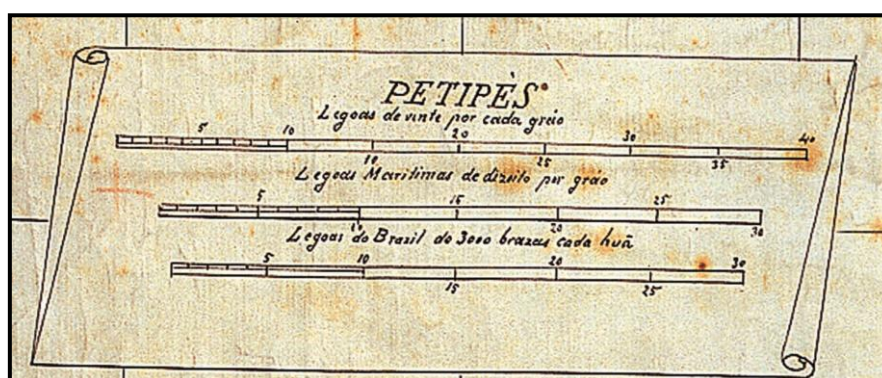 PETIPÈS
Legoas de vinte por cada gráo
5 10 20 30 40
10 25 35
Legoas Maritimas de dizoito por gráo
5 15 25
10 20 30
Legoas do Brazil do 3000 brazas cada huã
5 10 20 30
15 25